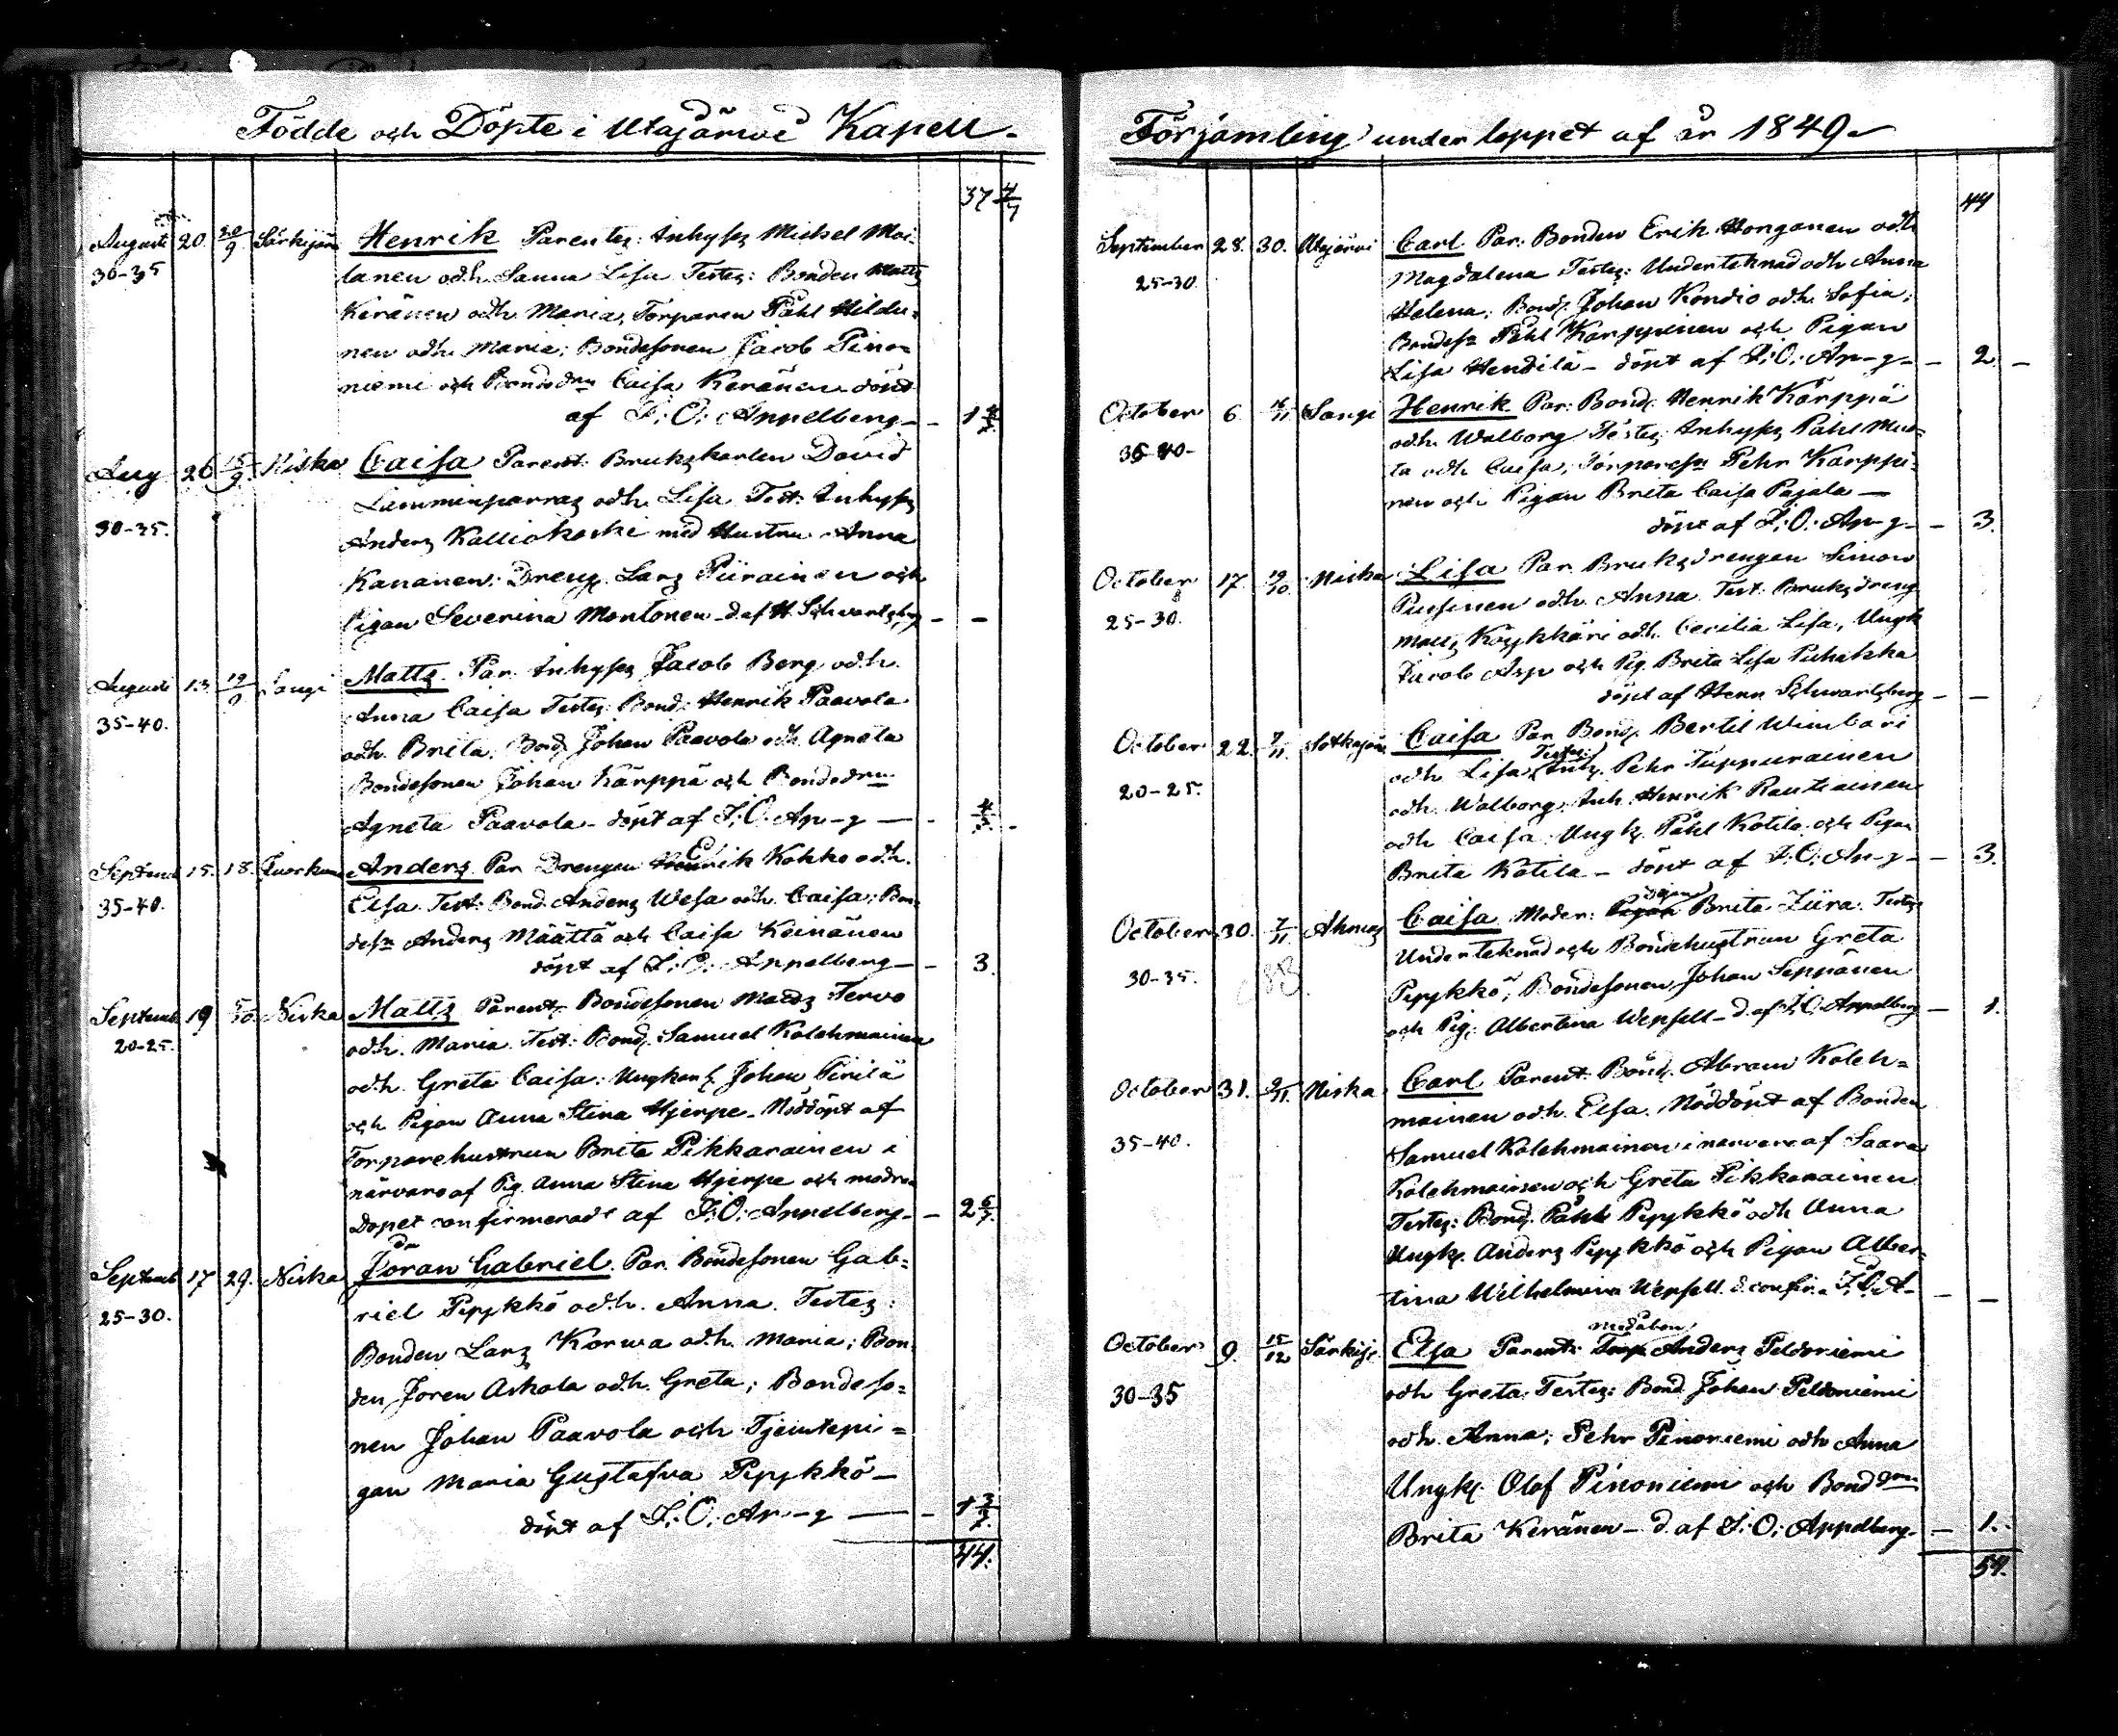 Födde och Döpte i Utajärvi Kapell
37 4/7
Augusti 20. 20/9 Särkijärvi Henrik Parentes: Inhyses Michel Moi-
30-35
lanen och h. Sanna Lisa Testes: Bonden Matts
Keränen och h. Maria, Torparen Påhl Hildu-
nen och h. Maria; Bondesonen Jacob Pino-
niemi och Bondedrn Caisa Keränen döpt
af J: O: Appelberg - 1
Aug 26 15/9. Niska Caisa Parent: Brukskarlen David
Lumminparras och h. Lisa Test: Inhyses
30-35.
Anders Kalliokoski med Hustru Anna
Kananen; Dreng. Lars Piirainen och
Pigan Severina Montonen d. af H. Schvartzberg - -
Augusti 13. 19/9 Sangi Matts Par. Inhyses Jacob Berg och h.
35-40.
Anna Caisa Testes: Bond. Henrik Paavola
och h. Brita; Bond. Johan Paavola och h. Agneta
Bondesonen Johan Kärppä och Bondedrn
Agneta Paavola - döpt af J: O: Ap-g - 4/7.
Septemb 15. 18. Juorkuna Anders Par Drengen Erik Kokko och h.
35-40.
Elsa. Test: Bond. Anders Wesa och h. Caisa; Bon-
desn Anders Määttä och Caisa Keinänen
döpt af J: O: Appelberg - 3.
Septemb 19 5/10 Niska Matts Parent: Bondesonen Matts Tervo
20-25.
och h. Maria. Test: Bond. Samuel Kolehmainen
och h. Greta Caisa: Ungkarl Johan Pirilä
och Pigan Anna Stina Hjerpe. Nöddöpt af
Torparehustrun Brita Pikkarainen i
närvaro af Pig. Anna Stina Hjerpe och modren
Dopet confirmeradt af J: O: Appelberg - 2 6/7.
Septemb 17 29. Niska Jöran Gabriel. Par. Bondesonen Gab-
25-30.
riel Pyykkö och h. Anna. Testes:
Bonden Lars Korwa och h. Maria; Bon-
den Jören Askola och h. Greta; Bondeso-
nen Johan Paavola och Tjenstepi-
gan Maria Gustafva Pyykkö -
döpt af J: O: Ap-g - 1 3/7.
44.
Församling under loppet af år 1849
44
September 28. 30. Utajärvi Carl Par: Bonden Erik Honganen och h
25-30.
Magdalena Testes: Undertecknad och h Anna
Helena; Bond. Johan Kondio och h. Sofia;
Bondesn Påhl Karppinen och Pigan
Lisa Hendilä - döpt af J: O: Ap-g - 2. -
October 6. 16/11 Sangi Henrik Par: Bond. Henrik Kärppä
35-40.
och h. Walborg Testes: Inhyses Påhl Mus-
ta och h Caisa, Torparesn Pehr Karppi-
nen och Pigan Brita Caisa Pajala -
döpt af J: O: Ap-g - 3.
October 17. 19/10 Niska Lisa Par Bruksdrengen Simon
25-30.
Pussinen och h. Anna Test: Bruksdreng
Matts Köykkäri och h. Cecilia Lisa, Ungk
Jacob Asp och Pig. Brita Lisa Puhakka
döpt af Herr Schvartzberg - -
October 22. 9/11. Sotkajärvi Caisa Par Bond. Bertil Wimbari
20-25.
och h Lisa Testes: Inh. Pehr Tuppurainen
och h. Walborg. Inh. Henrik Rautiainen
och h Caisa. Ungk. Påhl Kotila och Pigan
Brita Kotila - döpt af J: O: Ap-g - 3.
October 30. 7/11. Ahmas Caisa Moder: Pigan Brita Ziira. Testes
30-35.
Undertecknad och Bondehustrun Greta
Pyykkö; Bondesonen Johan Seppänen
och Pig. Albertina Wepsell - d. af J: O: Appelberg - 1.
October 31. 9/11. Niska Carl Parent. Bond. Abram Koleh-
35-40.
mainen och h. Elsa. Nöddöpt af Bonden
Samuel Kolehmainen i närvaro af Saara
Kolehmainen och Greta Pikkarainen
Testes: Bond. Påhl Pyykkö och h Anna
Ungk. Anders Pyykkö och Pigan Alber-
tina Wilhelmina Wepsell. d. confir. J: O: A - -
October 9. 15/12 Särkijr Elsa Parent: Medåbon Torp Anders Peldoniemi
30-35
och h Greta. Testes: Bond. Johan Peldoniemi
och h. Anna; Pehr Pinoniemi och h Anna
Ungk. Olof Pinoniemi och Bonddrn
Brita Keränen - d. af J: O: Appelberg - 1.
54.